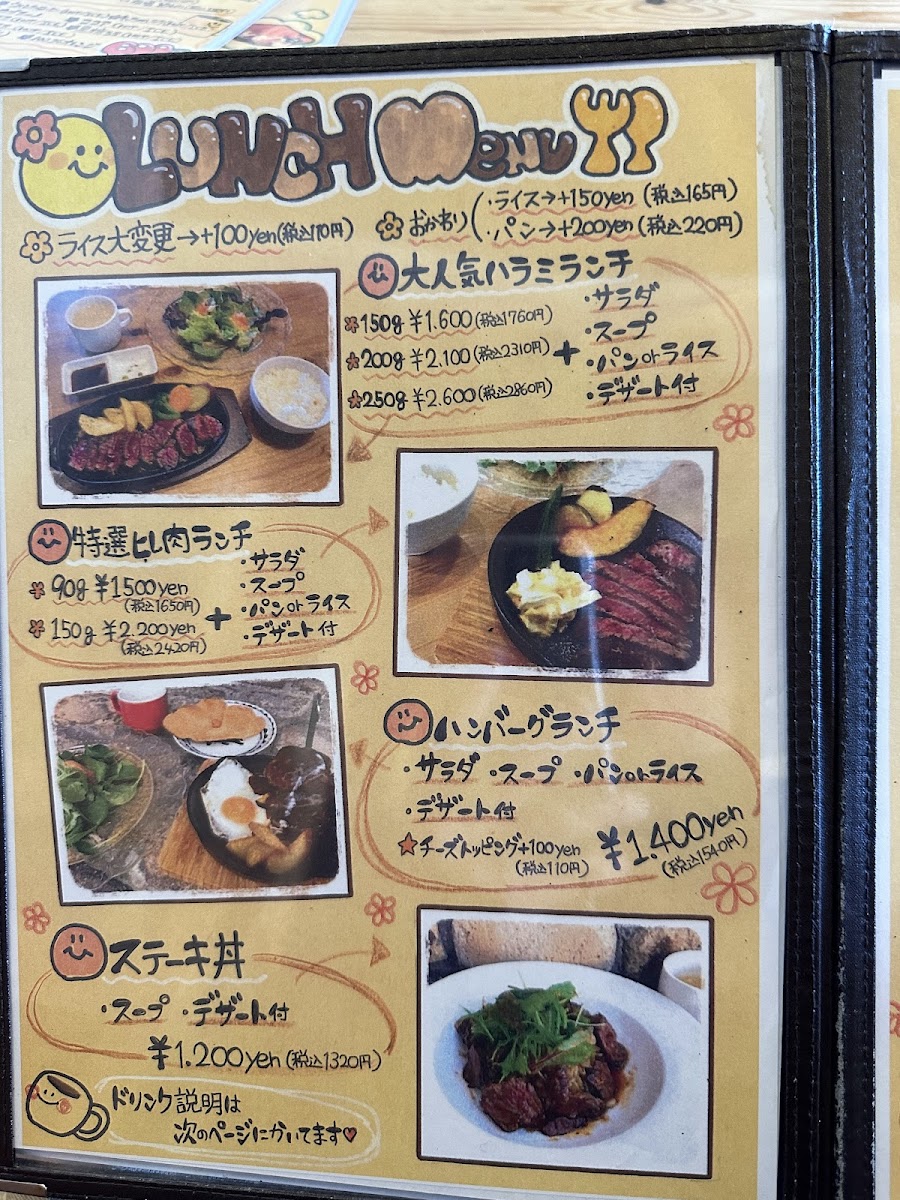 LUNCH MENU
ライス大変更→+100yen(税込110円)
おかわり
・ライス→+150yen (税込165円)
・パン→+200yen (税込220円)
大人気ハラミランチ
150g ¥1.600(税込1760円)
200g ¥2.100(税込2310円)
250g ¥2.600(税込2860円)
+
・サラダ
・スープ
・パンorライス
・デザート付
特選ヒレ肉ランチ
90g ¥1500yen
(税込1650円)
150g ¥2.200yen
(税込2420円)
+
・サラダ
・スープ
・パンorライス
・デザート付
ハンバーグランチ
・サラダ ・スープ ・パンorライス
・デザート付
★チーズトッピング+100yen
(税込110円)
¥1.400yen
(税込1540円)
ステーキ丼
・スープ ・デザート付
¥1.200yen(税込1320円)
ドリンク説明は
次のページにかいてます♥